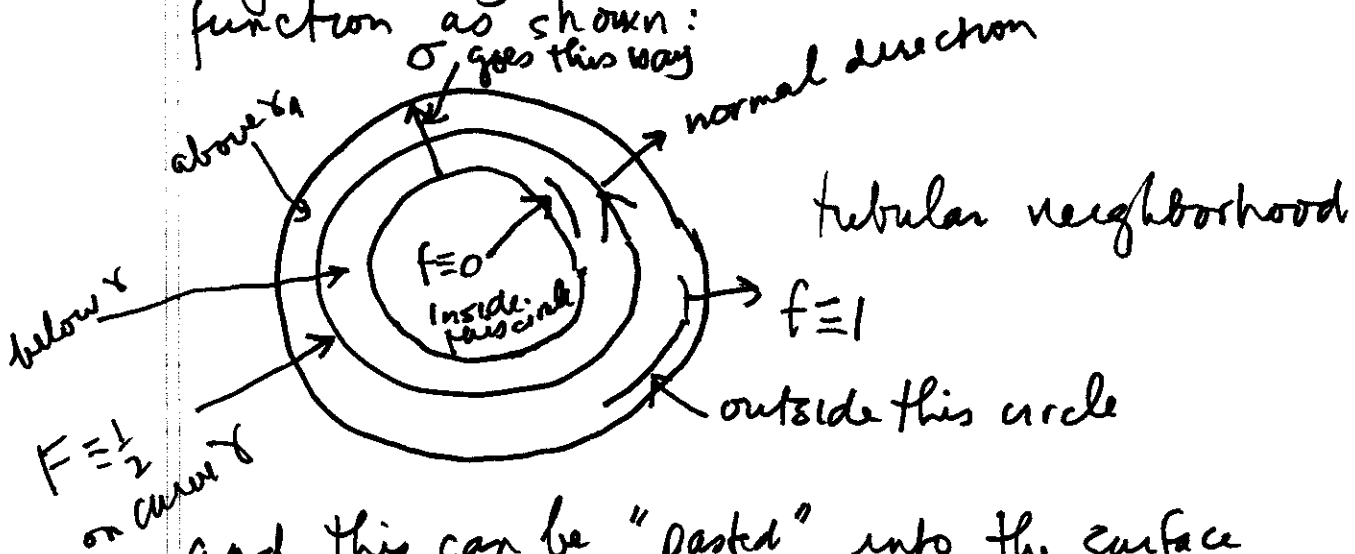 function as shown:
σ goes this way
normal direction
above γ
tubular neighborhood
f≡0
inside this circle
below γ
f≡1
outside this circle
F≡1/2
on curve γ
and this can be "pasted" into the surface